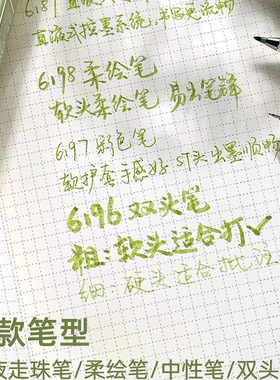 6187 直液
直液式控墨系统,书写更流畅
6198 柔绘笔
软头柔绘笔 易出笔锋
6197 彩色笔
软护套手感好 ST头出墨顺畅
6196 双头笔
粗:软头适合打✓
细:硬头适合批注
款笔型
液走珠笔/柔绘笔/中性笔/双头